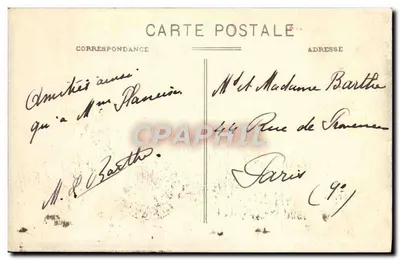 CARTE POSTALE
CORRESPONDANCE
ADRESSE
Amitiés ainsi
qu'a Mme
M. L. Barthe.
Mr et Madame Barthe
44 Rue de Provence
Paris
(9e)
CPARAMA